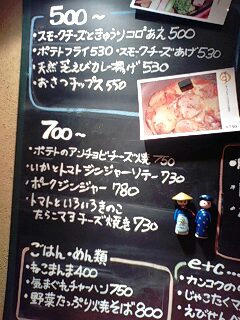 500～
・スモークチーズときゅうりコロピあえ500
・ポテトフライ530・スモークチーズあげ530
・天然芝えびカレー揚げ530
・おさつチップス550
700～
・ポテトのアンチョビチーズ焼750
・いかとトマトジンジャーソテー730
・ポークジンジャー780
・トマトといろいろきのこ
たらこマヨチーズ焼き730
ごはん・めん類
・ねこまんま400
・気まぐれチャーハン750
・野菜たっぷり焼そば800
e+c...
・カンコクの
・じゃこたくマ
・えびせんべ